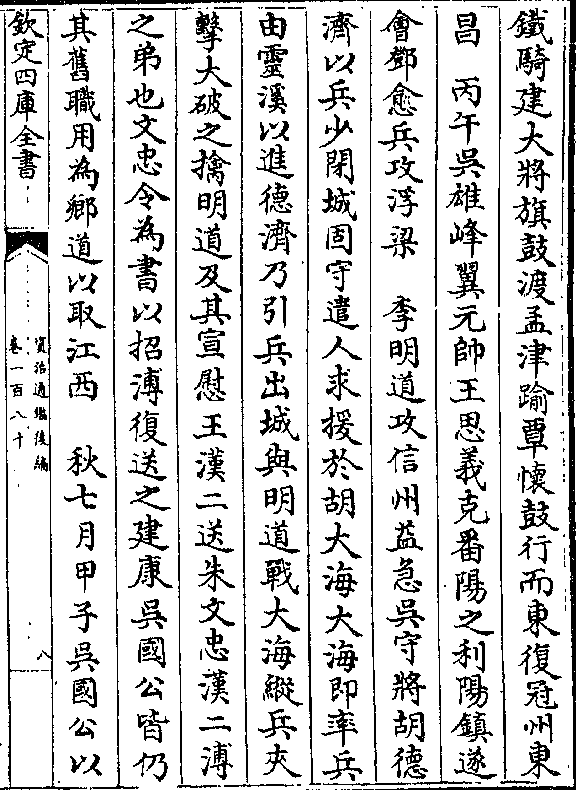 鐵騎建大將旗鼓渡孟津踰覃懷鼓行而東復冠州東
昌　丙午吳雄峰翼元帥王思義克番陽之利陽鎮遂
會鄧愈兵攻浮梁　李明道攻信州益急吳守將胡德
濟以兵少閉城固守遣人求援於胡大海大海即率兵
由靈溪以進德濟乃引兵出城與明道戰大海縱兵夾
擊大破之擒明道及其宣慰王漢二送朱文忠漢二溥
之弟也文忠令為書以招溥復送之建康吳國公皆仍
其舊職用為鄉道以取江西　秋七月甲子吳國公以
欽定四庫全書
資治通鑑後編
卷一百八十
八